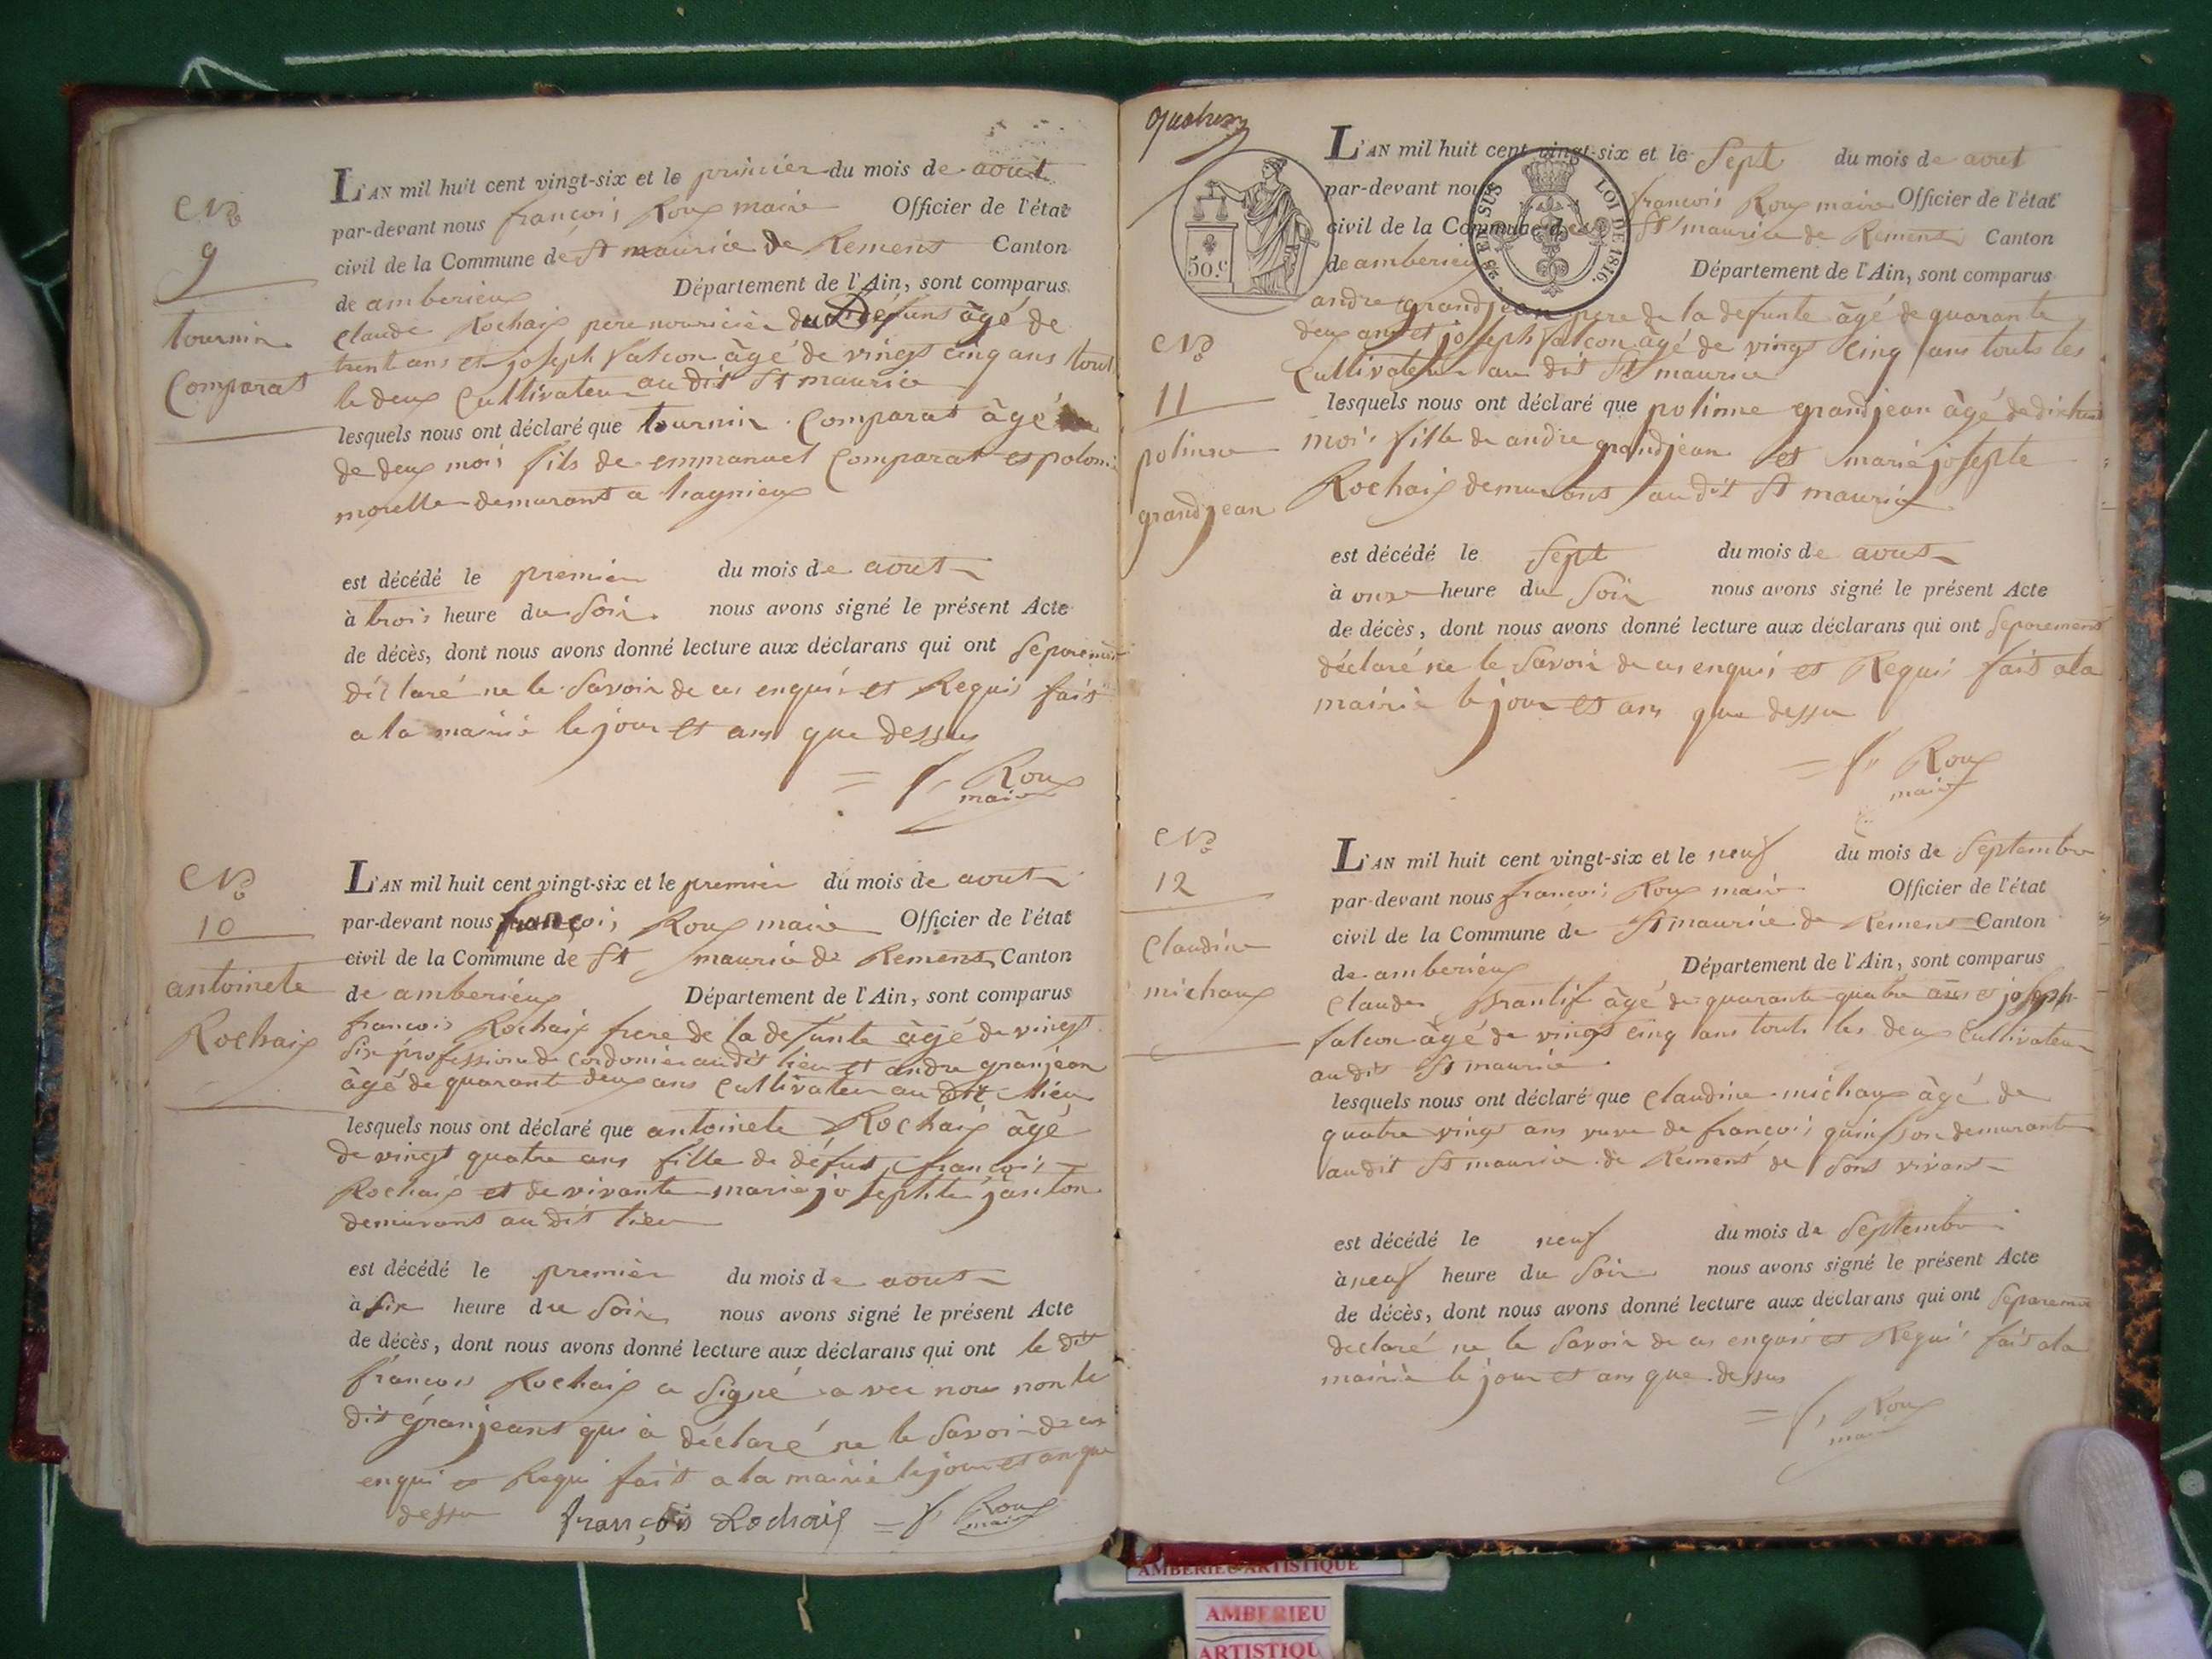 No
9
tournin
Comparat
L'AN mil huit cent vingt-six et le primier du mois de aout
par-devant nous françois Roux maire Officier de l'état
civil de la Commune de St maurice de Remens Canton
de amberieux Département de l'Ain, sont comparus
claude Rochaix pere nouricier du Défunt âgé de
trent ans et joseph falcon âgé de vingt cinq ans tout
le deux Cultivateur au dit St maurice
lesquels nous ont déclaré que tournin Comparat âgé
de deux mois fils de emmanuel Comparat et poloni
morelle demurant a lagnieux
est décédé le premier du mois de aout
à trois heure du Soir nous avons signé le présent Acte
de décès, dont nous avons donné lecture aux déclarans qui ont Séparement
déclaré ne le Savoir de ces enquis et Requis fait
a la mairie le jour et ans que dessus
= f, Roux
maire
No
10
antoinete
Rochaix
L'AN mil huit cent vingt-six et le premier du mois de aout
par-devant nous françois Roux maire Officier de l'état
civil de la Commune de St maurice de Remens Canton
de amberieux Département de l'Ain, sont comparus
francois Rochaix frere de la defunte âgé de vingt
Six profession de cordonier au dit lieu et andre granjean
âgé de quarante deux ans Cultivateur au dit lieu
lesquels nous ont déclaré que antoinete Rochaix âgé
de vingt quatre ans fille de défut françois
Rochaix et de vivante marie josephte janton
demurant au dit lieu
est décédé le premier du mois de aout
à Six heure du Soir nous avons signé le présent Acte
de décès, dont nous avons donné lecture aux déclarans qui ont le dit
françois Rochaix a Signé avec nous non le
dit granjeant qui a déclaré ne le Savoir de ces
enqui et Requi fait a la mairie le jour et an que
dessu françois Rochaix = f, Roux
maire
L'AN mil huit cent vingt-six et le Sept du mois de aout
par-devant nous francois Roux maire Officier de l'état
civil de la Commune de St maurice de Remens Canton
de amberieux Département de l'Ain, sont comparus
50.c
EN SUS
LOI DE 1816.
No
11
polinne
grandjean
andre grandjean pere de la defunte âgé de quarante
deux ans et joseph falcon âgé de vingt Cinq ans touts les
Cultivateur au dit St maurice
lesquels nous ont déclaré que polinne grandjean âgé de dix huit
mois fille de andre grandjean et marie josepte
Rochaix demurant au dit St maurice
est décédé le Sept du mois de aout
à onze heure du Soir nous avons signé le présent Acte
de décès, dont nous avons donné lecture aux déclarans qui ont Séparement
déclaré ne le Savoir de ces enquis et Requi fait a la
mairie le jour et ans que dessu
= f, Roux
maire
No
12
Claudine
michaux
L'AN mil huit cent vingt-six et le neuf du mois de Septembre
par-devant nous françois Roux maire Officier de l'état
civil de la Commune de St maurice de Remens Canton
de amberieux Département de l'Ain, sont comparus
Claude âgé de quarante quatre ans et joseph
falcon âgé de vingt cinq ans touts les deux Cultivateur
au dit St maurice
lesquels nous ont déclaré que Claudine michaux âgé de
quatre vingt ans veuve de françois quinson demurante
au dit St maurice de Remens de Sont vivant
est décédé le neuf du mois de Septembre
à neuf heure du Soir nous avons signé le présent Acte
de décès, dont nous avons donné lecture aux déclarans qui ont Séparement
declaré ne le Savoir de ces enquis et Requis fait a la
mairie le jour et ans que dessus
= f, Roux
maire
AMBERIEU ARTISTIQUE
AMBERIEU
ARTISTIQU